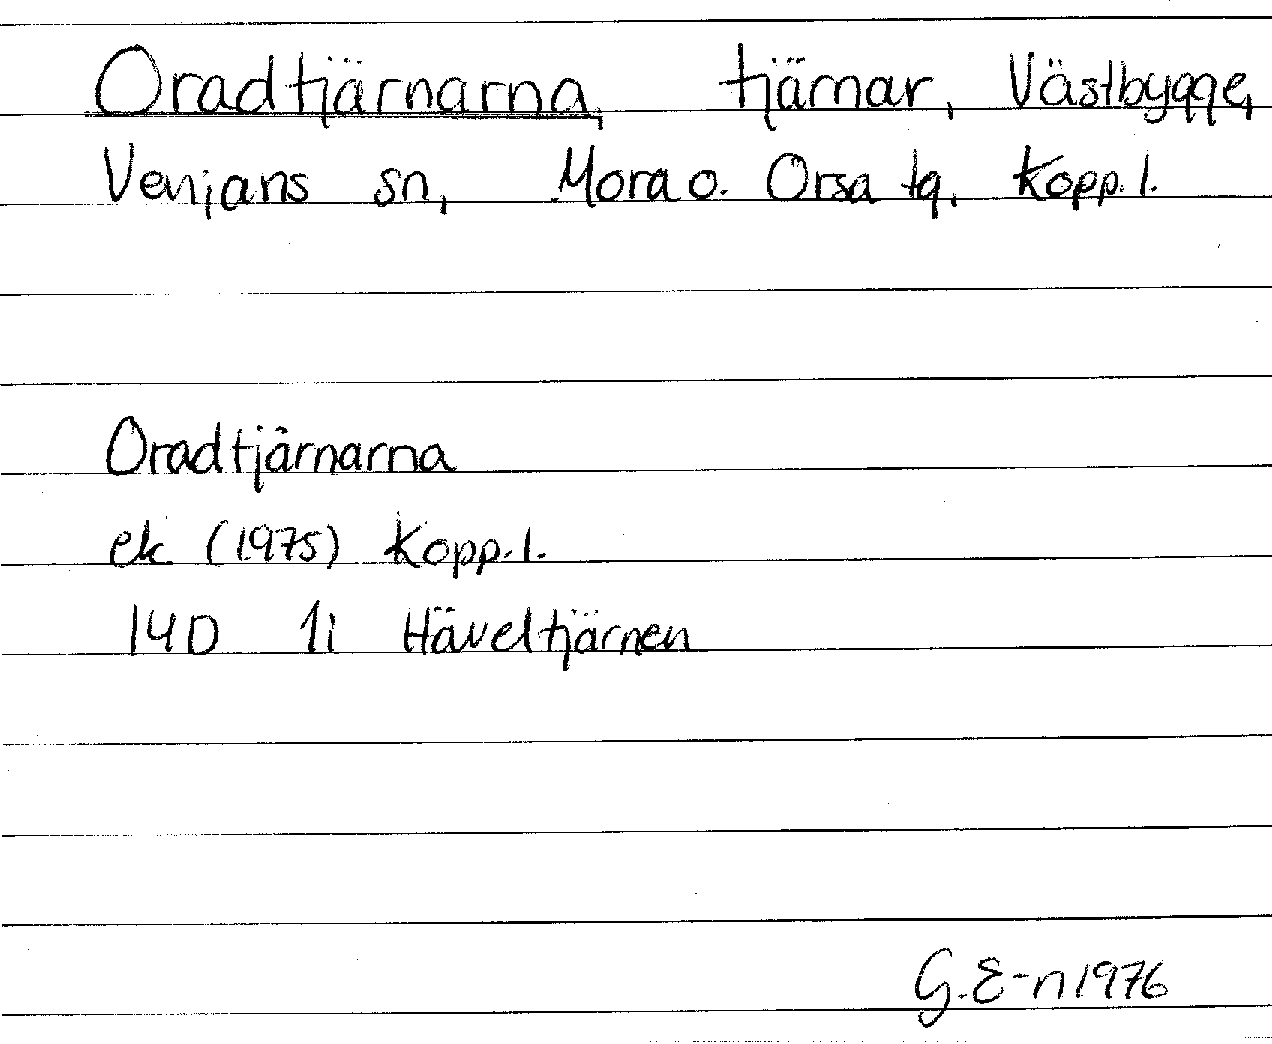 Oradtjärnarna, tjärnar, Västbygge,
Venjans sn, Mora o. Orsa tg. Kopp. l.
Oradtjärnarna
ek (1975) Kopp. l.
14D 1i Häveltjärnen
G. E-n 1976